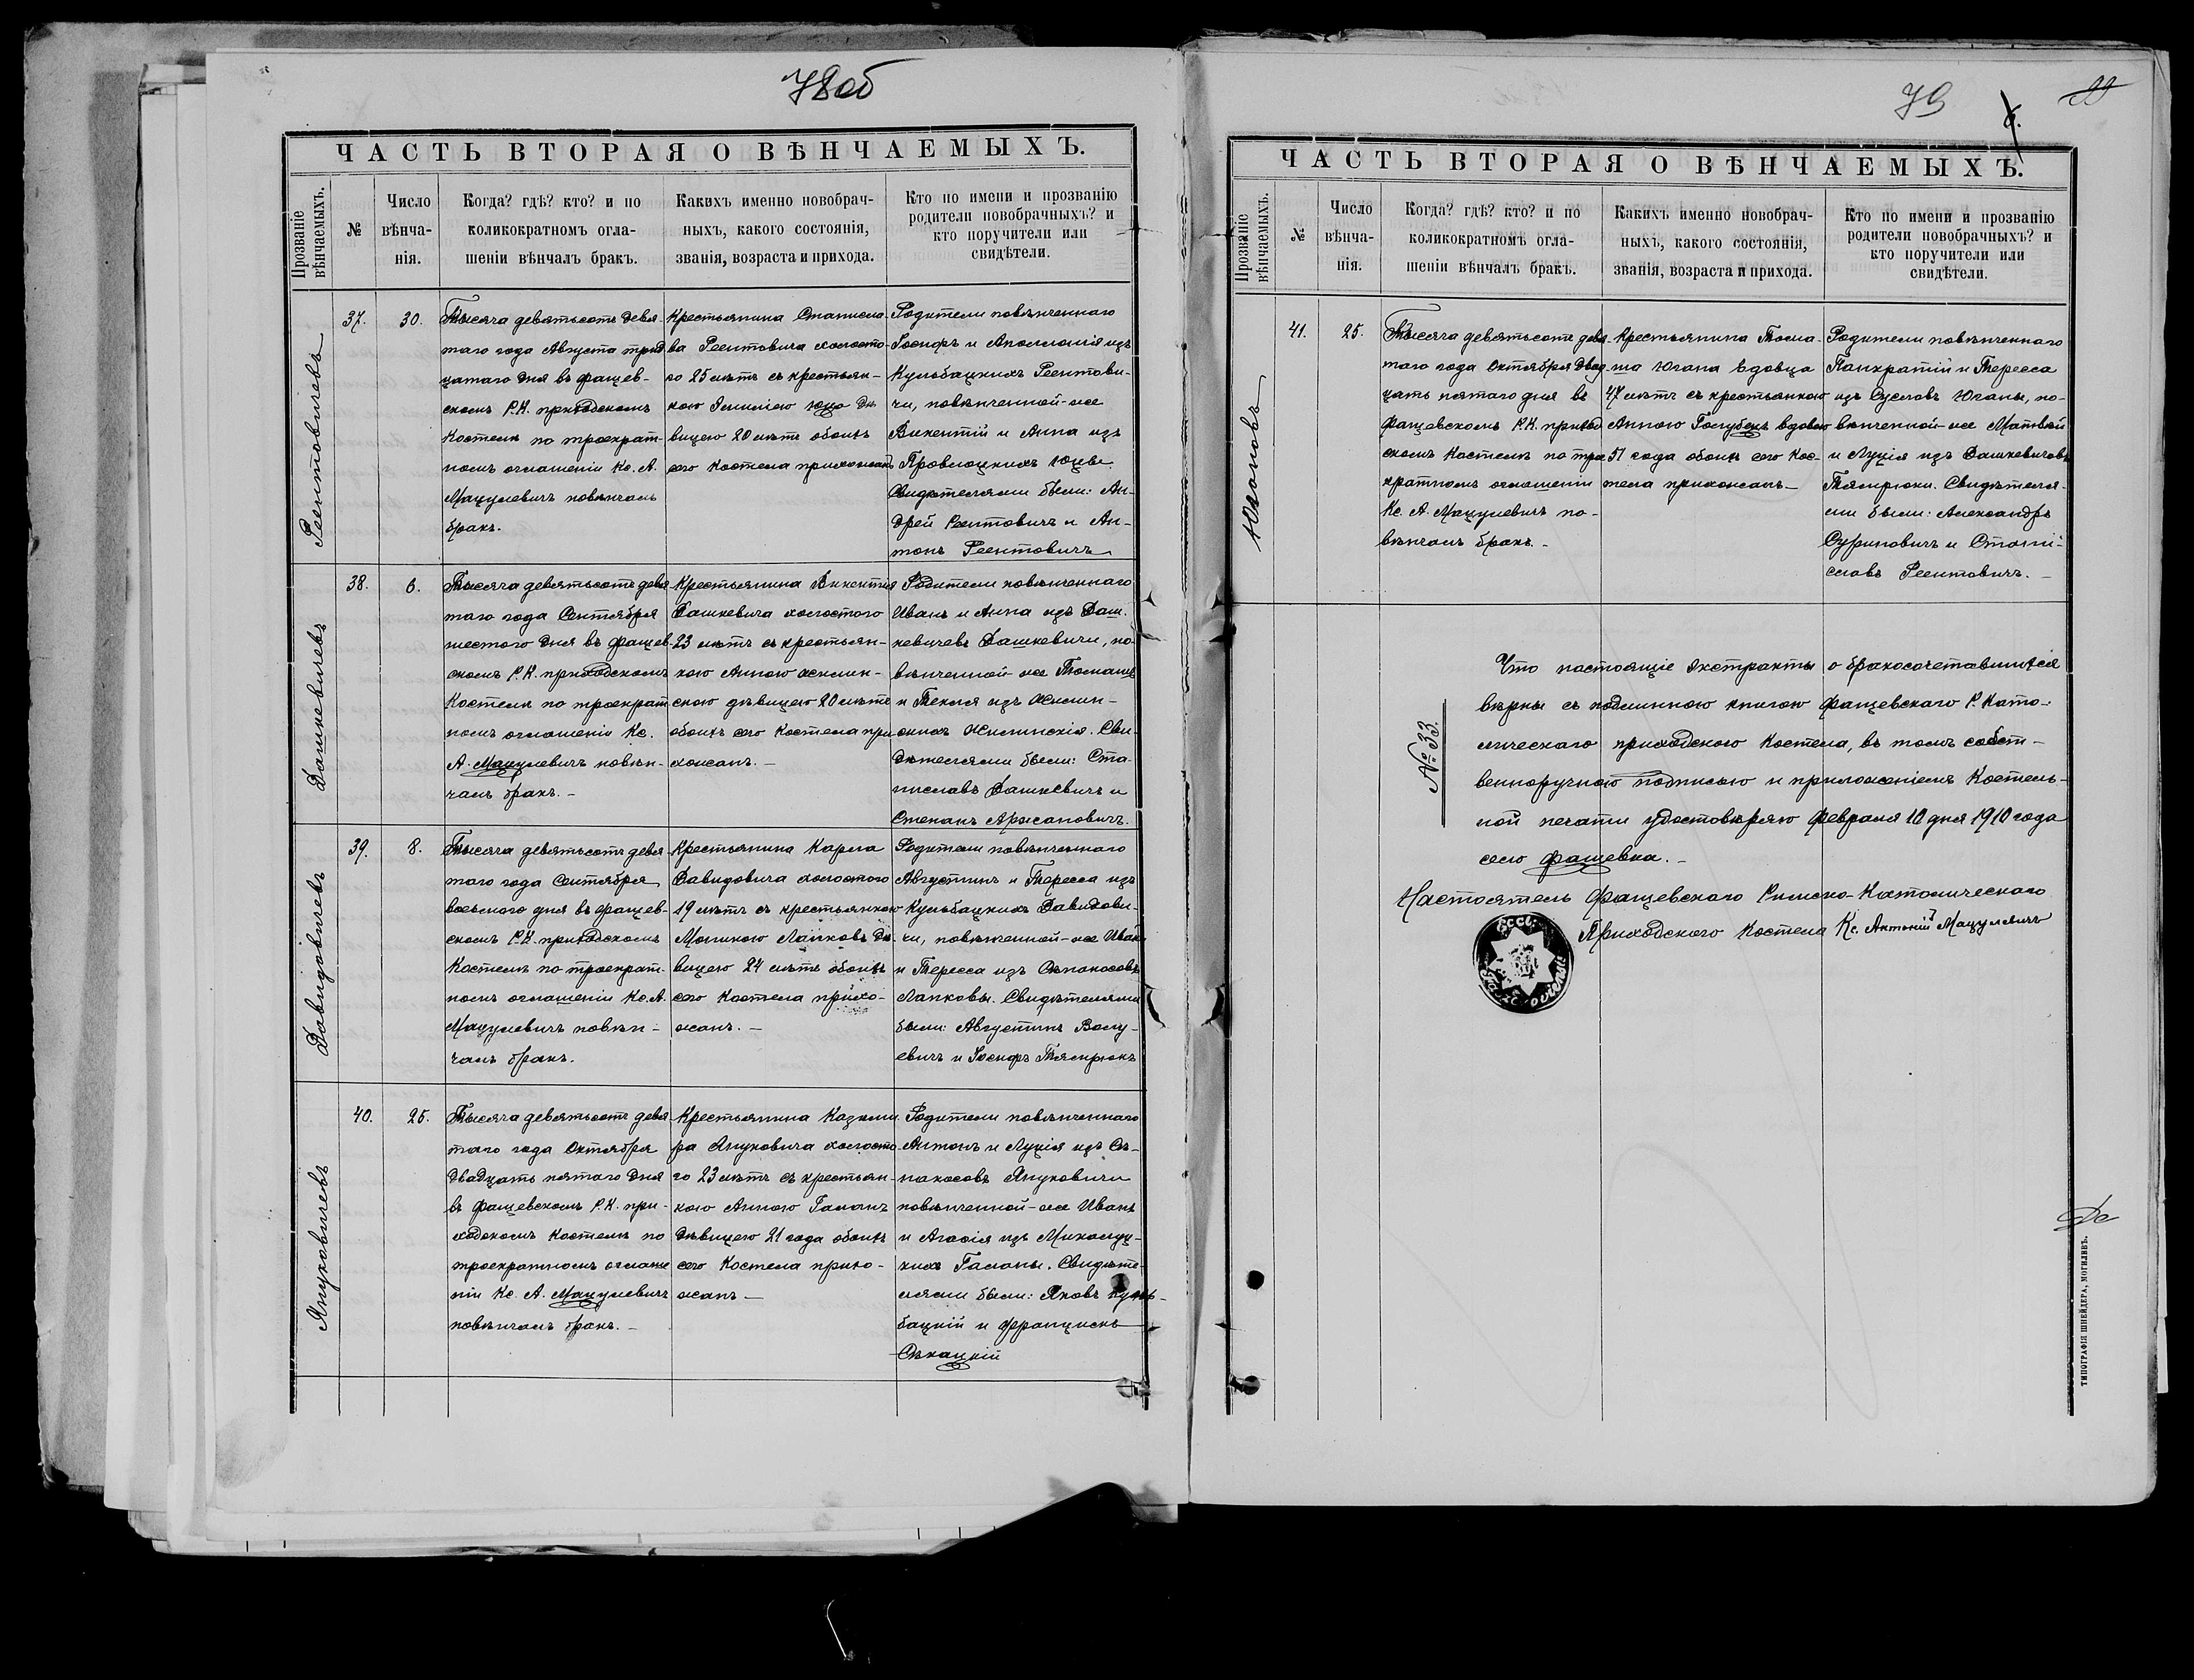 78об
ЧАСТЬ ВТОРАЯ О ВѢНЧАЕМЫХЪ.
Прозваніе вѣнчаемыхъ.
№
Число вѣнча-
нія.
Когда? гдѣ? кто? и по
коликократномъ огла-
шеніи вѣнчалъ бракъ.
Какихъ именно новобрач-
ныхъ, какого состоянія,
званія, возраста и прихода.
Кто по имени и прозванію
родители новобрачныхъ? и
кто поручители или
свидѣтели.
Реентовичевъ
37.
30.
Тысяча девятьсотъ девя-
таго года Августа трид-
цатаго дня въ фащев-
скомъ Р.К. приходскомъ
Костелѣ по троекрат-
номъ оглашеніи Кс. А.
Мацулевичъ повѣнчалъ
бракъ.
Крестьянина Станисла-
ва Реентовича холосто-
го 25 лѣтъ съ крестьян-
кою Эмиліею Юцо дѣ-
вицею 20 лѣтъ обоихъ
сего Костела прихожанъ
Родители повѣнченнаго
Іосифъ и Аполлонія изъ
Кульбацкихъ Реентови-
чи, повѣнченной-же
Викентій и Анна изъ
Свидѣтелями были: Ан-
дрей Реентовичъ и Ан-
тонъ Реентовичъ
Дашкевичевъ
38.
6.
Тысяча девятьсотъ девя-
таго года Сентября
шестого дня въ фащев-
скомъ Р.К. приходскомъ
Костелѣ по троекрат-
номъ оглашеніи Кс.
А. Мацулевичъ повѣн-
чалъ бракъ. -
Крестьянина Викентія
Дашкевича холостого
23 лѣтъ съ крестьян-
кою Анною Жилин-
скою дѣвицею 20 лѣтъ
обоихъ сего Костела при-
хожанъ. -
Родители повѣнченнаго
Иванъ и Анна изъ Даш-
кевичевъ Дашкевичи, по-
вѣнченной-же Томашъ
и Текля изъ Жилин-
скихъ Жилинскія. Сви-
дѣтелями были: Ста-
ниславъ Дашкевичъ и
Степанъ Аржановичъ.
Давидовичевъ
39.
8.
Тысяча девятьсотъ девя-
таго года Сентября
восьмого дня въ фащев-
скомъ Р.К. приходскомъ
Костелѣ по троекрат-
номъ оглашеніи Кс. А.
Мацулевичъ повѣн-
чалъ бракъ.
Крестьянина Карла
Давидовича холостого
19 лѣтъ съ крестьянкою
Моникою Лапковъ дѣ-
вицею 24 лѣтъ обоихъ
сего Костела прихо-
жанъ. -
Родители повѣнченнаго
Августинъ и Тересса изъ
Кульбацкихъ Давидови-
чи, повѣнченной-же Иванъ
и Тересса изъ Сѣпокосовъ
Лапковы. Свидѣтелями
были: Августинъ Валу-
евичъ и Іосифъ Тямрюкъ
Януковичевъ
40.
25.
Тысяча девятьсотъ девя-
таго года Октября
двадцать пятаго дня
въ фащевскомъ Р.К. при-
ходскомъ Костелѣ по
троекратномъ оглаше-
ніи Кс. А. Мацулевичъ
повѣнчалъ бракъ. -
Крестьянина Казими-
ра Януковича холосто-
го 23 лѣтъ съ крестьян-
кою Анною Галанъ
дѣвицею 21 года обоихъ
сего Костела прихо-
жанъ -
Родители повѣнченнаго
Антонъ и Луція изъ Сѣ-
покосовъ Януковичи
повѣнченной-же Иванъ
и Агафія изъ Миколуц-
кихъ Галаны. Свидѣте-
лями были: Яковъ Куль-
бацкій и Францискъ
Сѣкацкій
79
ЧАСТЬ ВТОРАЯ О ВѢНЧАЕМЫХЪ.
Прозваніе вѣнчаемыхъ.
№
Число вѣнча-
нія.
Когда? гдѣ? кто? и по
коликократномъ огла-
шеніи вѣнчалъ бракъ.
Какихъ именно новобрач-
ныхъ, какого состоянія,
званія, возраста и прихода.
Кто по имени и прозванію
родители новобрачныхъ? и
кто поручители или
свидѣтели.
Югановъ
41.
25.
Тысяча девятьсотъ девя-
таго года Октября двад-
цать пятаго дня въ
фащевскомъ Р.К. приход-
скомъ Костелѣ по трое-
кратномъ оглашеніи
Кс. А. Мацулевичъ по-
вѣнчалъ бракъ. -
Крестьянина Тома-
ша Югана вдовца
47 лѣтъ съ крестьянкою
Анною Голубецъ вдовою
51 года обоихъ сего Кос-
тела прихожанъ -
Родители повѣнченнаго
Панкратій и Тересса
изъ Сусловъ Юганы, по-
вѣнченной-же Матвѣй
и Луція изъ Дашкевичовъ
Тямрюки. Свидѣтеля-
ми были: Александръ
Суриновичъ и Стани-
славъ Реентовичъ. -
№ 33
Что настоящіе экстракты о бракосочетавшихся
вѣрны съ подлинною книгою фащевскаго Р. Като-
лическаго приходскаго Костела, въ томъ собст-
венноручною подписью и приложеніемъ Костель-
ной печати удостовѣряю февраля 10 дня 1910 года
село фащевка. -
Настоятель Фащевскаго Римско-Католическаго
Приходского Костела Кс. Антоній Мацулевичъ
ТИПОГРАФІЯ ШНЕЙДЕРА, МОГИЛЕВЪ.